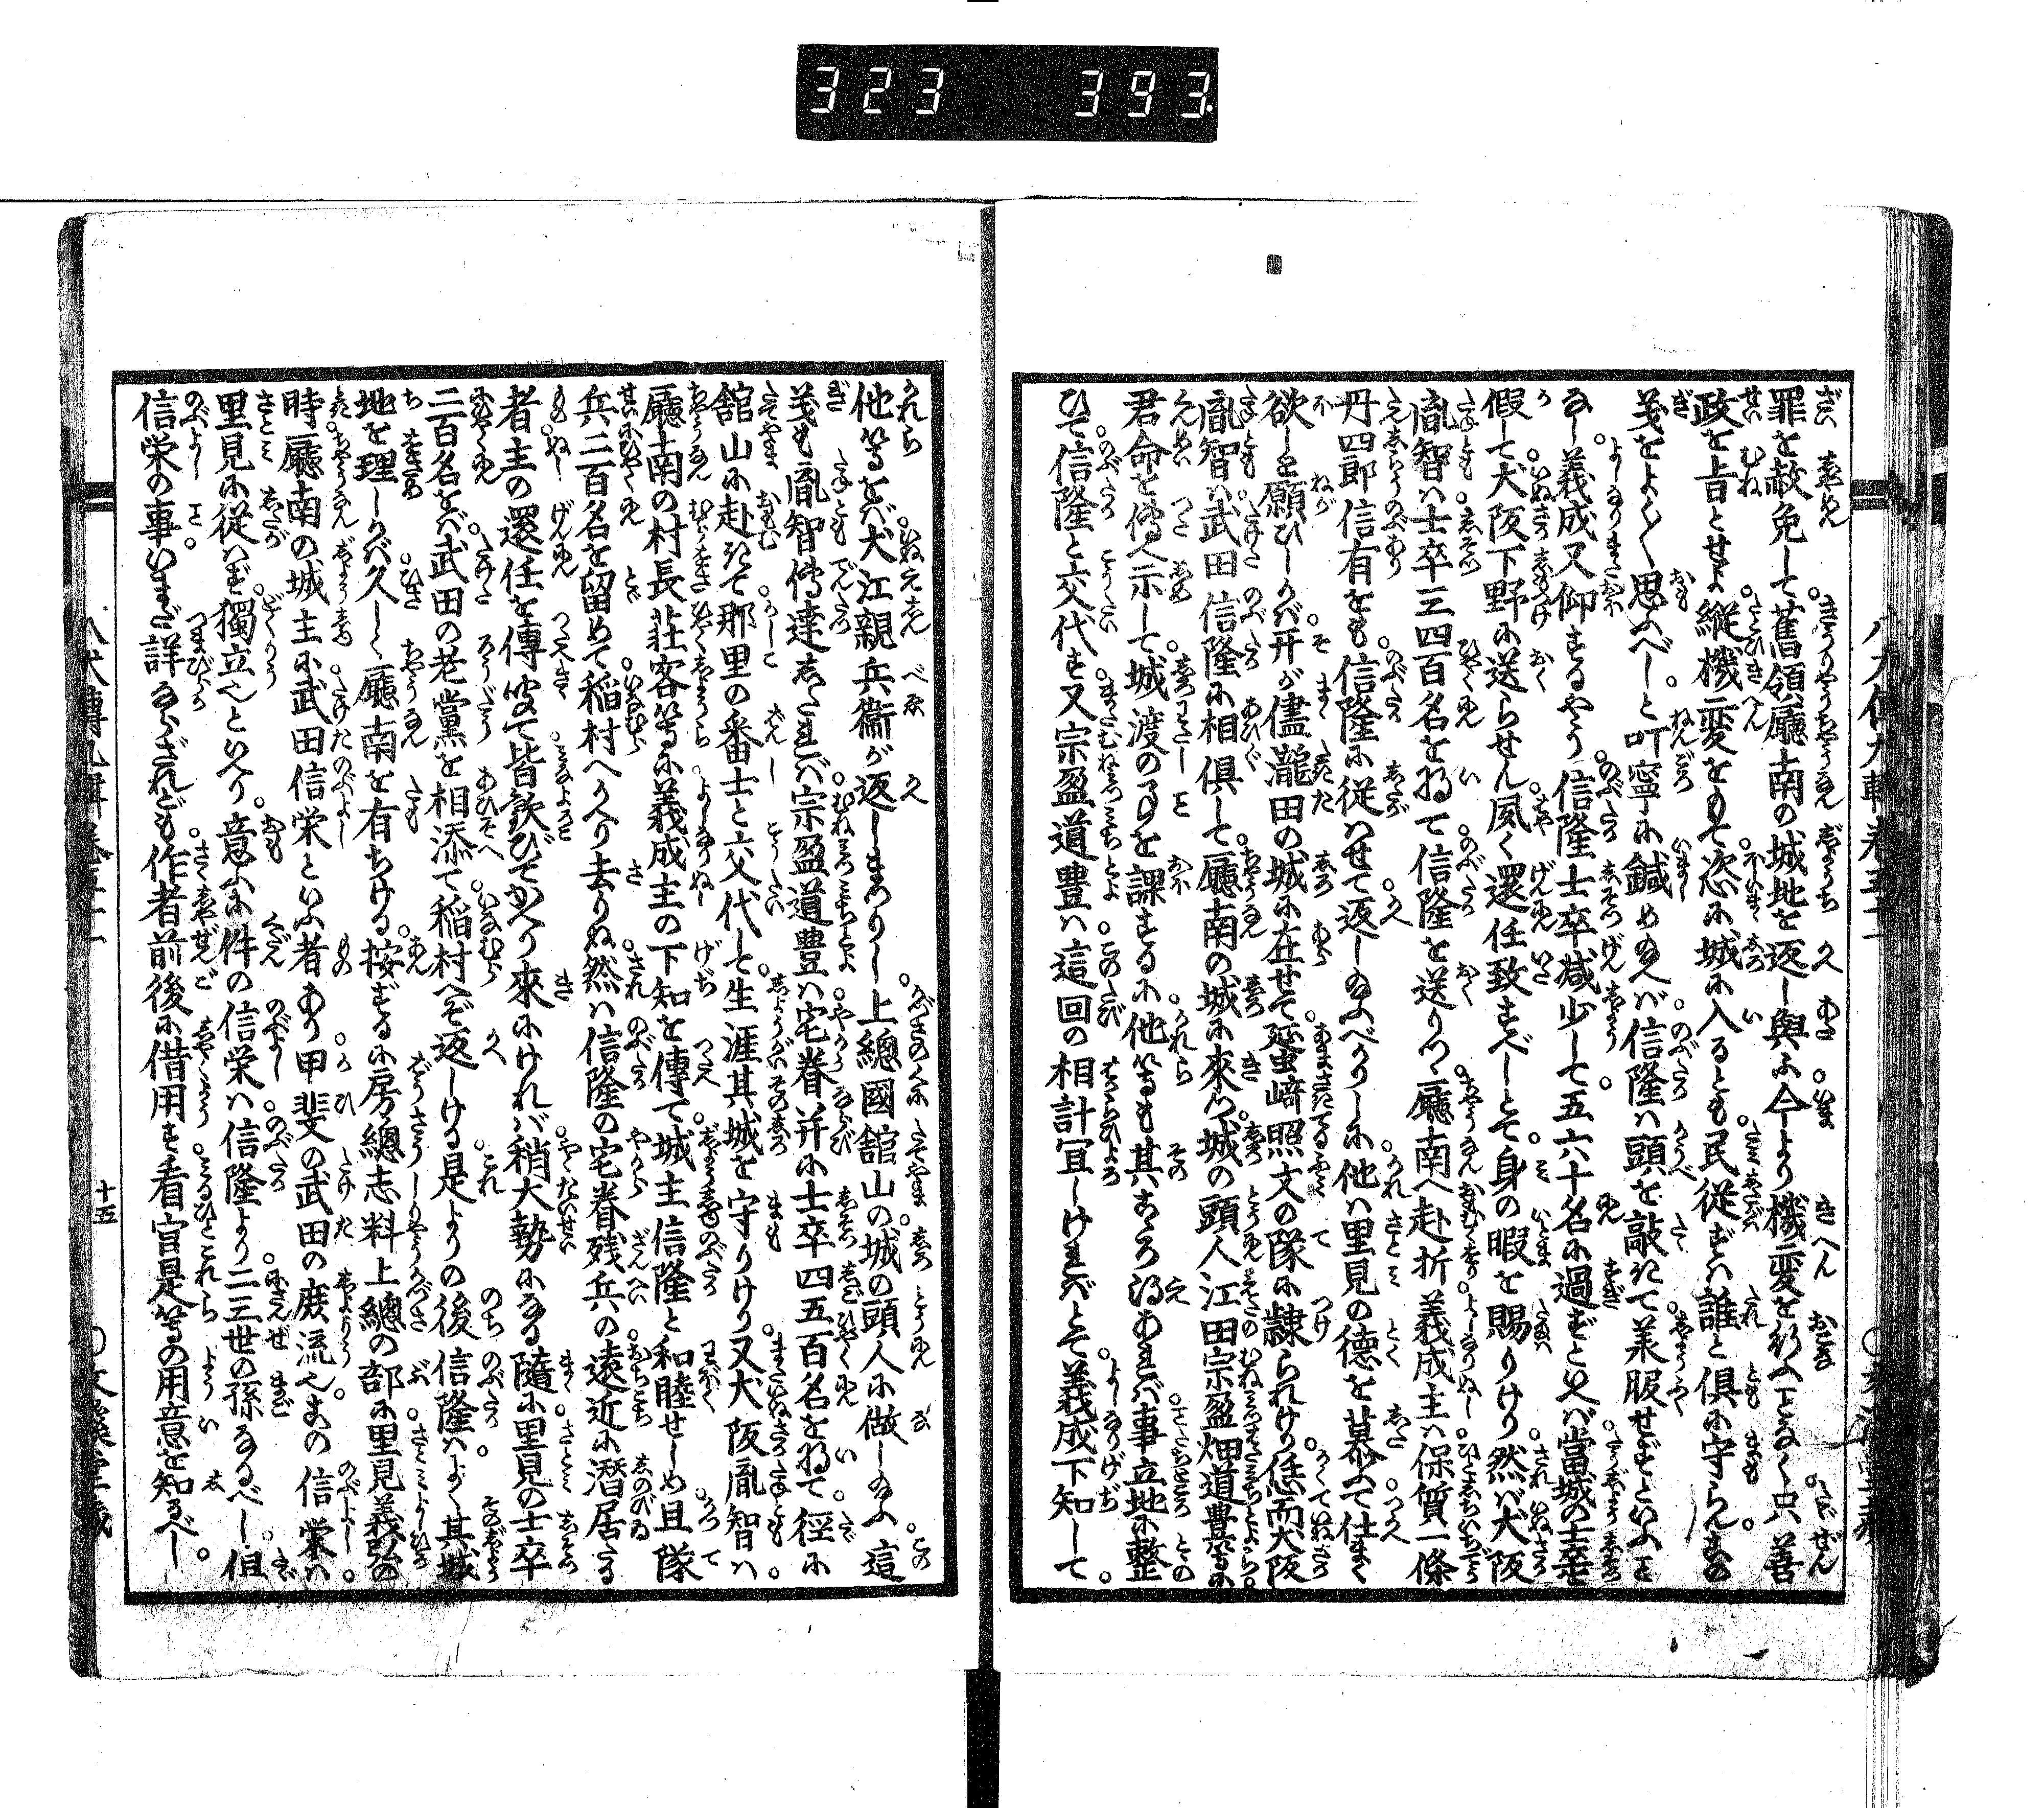 323 393
罪を赦免して舊領廳南の城地を返し與ふ今より機変を行ふことなく只善
政を旨とせよ縦機変をもて恣に城に入るとも民従ずは誰と倶に守らんこの
義をよく〱思ふべしと叮寧に鍼め給へば信隆は頭を敲きて羕服せずといふこと
なし義成又仰するやう信隆士卒減少して五六十名に過ずといへば當城の士卒を
假して犬阪下野に送らせん夙く還任致すべしとて身の暇を賜りけり然ば犬阪
胤智は士卒三四百名を将て信隆を送りつゝ廳南へ赴折義成主は保質一條
丹四郎信有をも信隆に従はせて返し給ふべかりしに他は里見の徳を慕ふて仕まく
欲しと願ひしかば开が儘瀧田の城に在せて蜑崎照文の隊に隷られけり恁而犬阪
胤智は武田信隆に相倶して廳南の城に來つ城の頭人江田宗盈畑道豊等に
君命を傳へ示して城渡の事を課するに他等も其こゝろ得あれば事立地に整
ひて信隆と交代す又宗盈道豊は這回の相計宜しければとて義成下知して
他等をば犬江親兵衞が返しまゐりし上總國舘山の城の頭人に做し給ふ這
義も胤智傳達しければ宗盈道豊は宅眷并に士卒四五百名を将て徑に
舘山に赴きて那里の番士と交代しと生涯其城を守りけり又犬阪胤智は
廳南の村長莊客等に義成主の下知を傳て城主信隆と和睦せしめ且隊
兵二百名を留めて稲村へかへり去りぬ然ば信隆の宅眷残兵の遠近に潜居たる
者主の還任を傳聞て皆歓びてかへり來にければ稍大勢になる隨に里見の士卒
二百名をば武田の老黨を相添て稲村へぞ返しける是よりの後信隆はよく其城
地を理しかば久しく廳南を有ちける按ずるに房總志料上總の部に里見義弘の
時廳南の城主に武田信栄といふ者あり甲斐の武田の庶流也この信栄は
里見に従はず獨立也といへり意ふに件の信栄は信隆より二三世の孫なるべし但
信栄の事いまだ詳ならざれども作者前後に借用す看官是等の用意を知るべし
十五